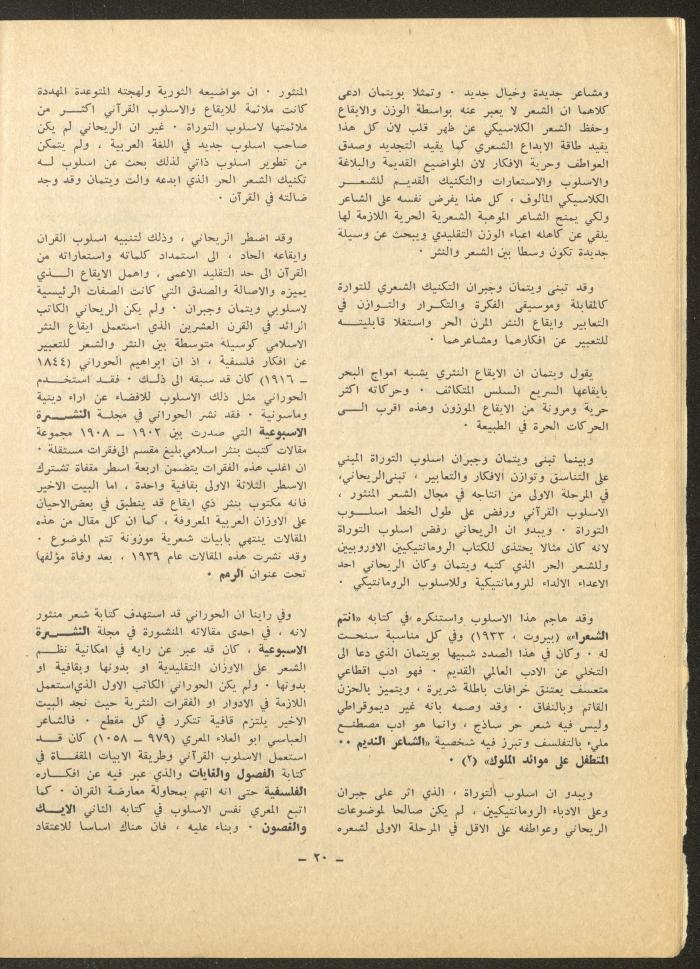 ومشاعر جديدة وخيال جديد ٠ وتمثلا بويتمان ادعى
كلاهما ان الشعر لا يعبر عنه بواسطة الوزن والايقاع
وحفظ الشعر الكلاسيكي عن ظهر قلب لان كل هذا
يقيد طاقة الابداع الشعري كما يقيد التجديد وصدق
العواطف وحرية الافكار لان المواضيع القديمة والبلاغة
والاسلوب والاستعارات والتكنيك القديم للشعر
الكلاسيكي المألوف ، كل هذا يفرض نفسه على الشاعر
ولكي يمنح الشاعر الموهبة الشعرية الحرية اللازمة لها
يلقي عن كاهله اعباء الوزن التقليدي ويبحث عن وسيلة
جديدة تكون وسطا بين الشعر والنثر ٠
وقد تبنى ويتمان وجبران التكنيك الشعري للتوارة
كالمقابلة وموسيقى الفكرة والتكرار والتوازن في
التعابير وايقاع النثر المرن الحر واستغلا قابليته
للتعبير عن افكارهما ومشاعرهما ٠
يقول ويتمان ان الايقاع النثري يشبه امواج البحر
بايقاعها السريع السلس المتكاثف ٠ وحركاته اكثر
حرية ومرونة من الايقاع الموزون وهذه اقرب الى
الحركات الحرة في الطبيعة ٠
وبينما تبنى ويتمان وجبران اسلوب التوراة المبني
على التناسق وتوازن الافكار والتعابير ، تبنى الريحاني،
في المرحلة الاولى من انتاجه في مجال الشعر المنثور ،
الاسلوب القرآني ورفض على طول الخط اسلوب
التوراة ٠ ويبدو ان الريحاني رفض اسلوب التوراة
لانه كان مثالا يحتذى للكتاب الرومانتيكيين الاوروبيين
وللشعر الحر الذي كتبه ويتمان وكان الريحاني احد
الاعداء الالداء للرومانتيكية وللاسلوب الرومانتيكي ٠
وقد هاجم هذا الاسلوب واستنكره في كتابه «انتم
الشعراء» (بيروت ، ١٩٣٣) وفي كل مناسبة سنحت
له ٠ وكان في هذا الصدد شبيها بويتمان الذي دعا الى
التخلي عن الادب العالمي القديم ٠ فهو ادب اقطاعي
متعسف يعتنق خرافات باطلة شريرة ، ويتميز بالحزن
القاتم وبالنفاق ٠ وقد وصمه بانه غير ديموقراطي
وليس فيه شعر حر ساذج ، وانما هو ادب مصطنع
مليء بالتفلسف وتبرز فيه شخصية «الشاعر النديم ٠٠
المتطفل على موائد الملوك» (٢) ٠
ويبدو ان اسلوب التوراة ، الذي اثر على جبران
وعلى الادباء الرومانتيكيين ، لم يكن صالحا لموضوعات
الريحاني وعواطفه على الاقل في المرحلة الاولى لشعره
المنثور ٠ ان مواضيعه الثورية ولهجته المتوعدة المهددة
كانت ملائمة للايقاع والاسلوب القرآني اكثر من
ملائمتها لاسلوب التوراة ٠ غير ان الريحاني لم يكن
صاحب اسلوب جديد في اللغة العربية ، ولم يتمكن
من تطوير اسلوب ذاتي لذلك بحث عن اسلوب له
تكنيك الشعر الحر الذي ابدعه والت ويتمان وقد وجد
ضالته في القرآن ٠
وقد اضطر الريحاني ، وذلك لتنبيه اسلوب القران
وايقاعه الحاد ، الى استمداد كلماته واستعاراته من
القرآن الى حد التقليد الاعمى ، واهمل الايقاع الذي
يميزه والاصالة والصدق التي كانت الصفات الرئيسية
لاسلوبي ويتمان وجبران ٠ ولم يكن الريحاني الكاتب
الرائد في القرن العشرين الذي استعمل ايقاع النثر
الاسلامي كوسيلة متوسطة بين النثر والشعر للتعبير
عن افكار فلسفية ، اذ ان ابراهيم الحوراني (١٨٤٤
– ١٩١٦) كان قد سبقه الى ذلك ٠ فقد استخدم
الحوراني مثل ذلك الاسلوب للافضاء عن اراء دينية
وماسونية ٠ فقد نشر الحوراني في مجلة النشرة
الاسبوعية التي صدرت بين ١٩٠٢ – ١٩٠٨ مجموعة
مقالات كتبت بنثر اسلامي بليغ مقسم الى فقرات مستقلة ٠
ان اغلب هذه الفقرات يتضمن اربعة اسطر مقفاة تشترك
الاسطر الثلاثة الاولى بقافية واحدة ، اما البيت الاخير
فانه مكتوب بنثر ذي ايقاع قد ينطبق في بعض الاحيان
على الاوزان العربية المعروفة ، كما ان كل مقال من هذه
المقالات ينتهي بابيات شعرية موزونة تتم الموضوع ٠
وقد نشرت هذه المقالات عام ١٩٣٩ ، بعد وفاة مؤلفها
تحت عنوان الرهم ٠
وفي راينا ان الحوراني قد استهدف كتابة شعر منثور
لانه ، في احدى مقالاته المنشورة في مجلة النشرة
الاسبوعية ، كان قد عبر عن رايه في امكانية نظم
الشعر على الاوزان التقليدية او بدونها وبقافية او
بدونها ٠ ولم يكن الحوراني الكاتب الاول الذي استعمل
اللازمة في الادوار او الفقرات النثرية حيث نجد البيت
الاخير يلتزم قافية تتكرر في كل مقطع ٠ فالشاعر
العباسي ابو العلاء المعري (٩٧٩ – ١٠٥٨) كان قد
استعمل الاسلوب القرآني وطريقة الابيات المقفاة في
كتابة الفصول والغايات والذي عبر فيه عن افكاره
الفلسفية حتى انه اتهم بمحاولة معارضة القران ٠ كما
اتبع المعري نفس الاسلوب في كتابه الثاني الايك
والغصون ٠ وبناء عليه ، فان هناك اساسا للاعتقاد
– ٢٠ –